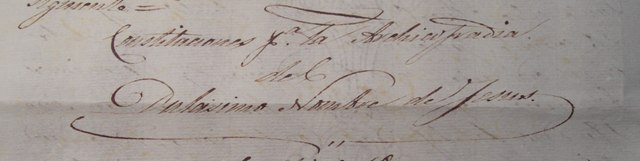 siguiente =
Constituciones pa. la Archicofradia.
del
Dulcisimo Nombre de Jesus.